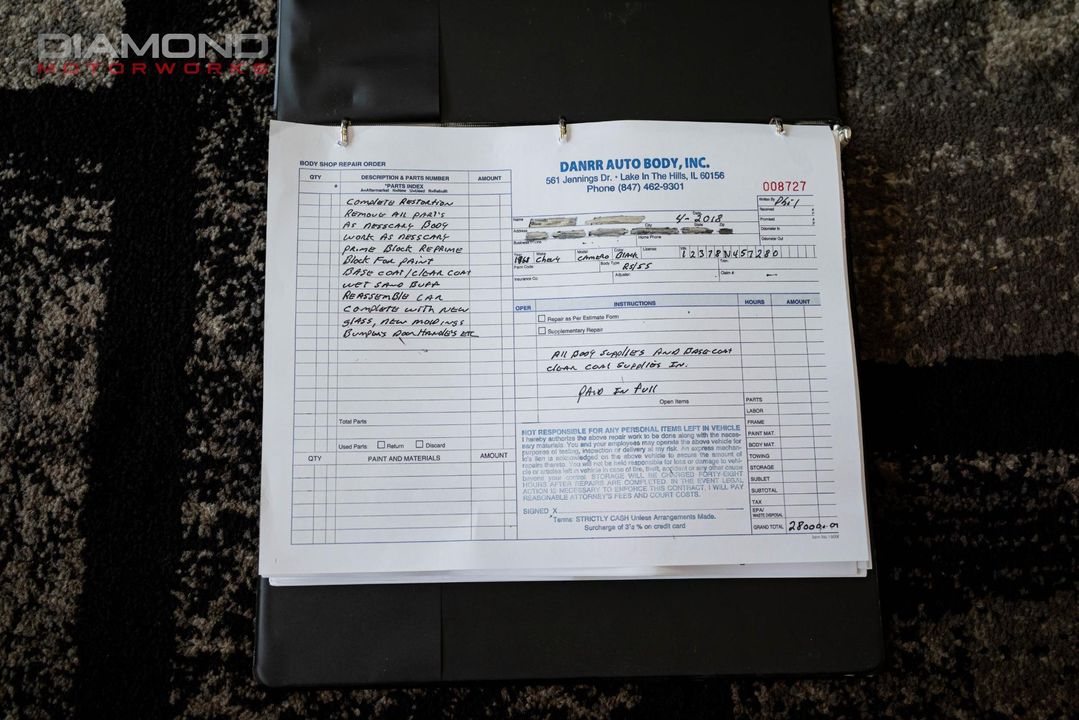 DIAMOND
MOTORWORKS
BODY SHOP REPAIR ORDER
QTY # DESCRIPTION & PARTS NUMBER AMOUNT
*PARTS INDEX
A=Aftermarket N=New U=Used R=Rebuilt
COMPLETE RESTORTION
REMOVE All PARTS
AS NESSCARY BODY
WORK AS NESSCARY
PRIME BLOCK REPRIME
BLOCK FOR PAINT
BASE COAT/CLEAR COAT
WET SAND BUFF
REASSEMBLE CAR
COMPLETE WITH NEW
glASS, NEW MOLDINGS
BUMPERS DOOR HANDLES ETC
Total Parts
Used Parts Return Discard
QTY PAINT AND MATERIALS AMOUNT
DANRR AUTO BODY, INC.
561 Jennings Dr. • Lake In The Hills, IL 60156
Phone (847) 462-9301
008727
Written By Phil
Received
Promised
Odometer In
Odometer Out
Name Date 4-2018
Address City State Zip
Business Phone Home Phone
Year 1968 Make Chevy Model CAMERO Color BLACK License VIN 12378N457280
Paint Code Body Type RS/SS Trim
Insurance Co. Adjuster Claim # —
OPER INSTRUCTIONS HOURS AMOUNT
Repair as Per Estimate Form
Supplementary Repair
All BODY SUPPLIES AND BASECOAT
CLEAR COAT SUPPLIES IN.
PAID IN FULL
Open Items
PARTS
LABOR
FRAME
PAINT MAT.
BODY MAT.
TOWING
STORAGE
SUBLET
SUBTOTAL
TAX
EPA/
WASTE DISPOSAL
GRAND TOTAL
NOT RESPONSIBLE FOR ANY PERSONAL ITEMS LEFT IN VEHICLE
I hereby authorize the above repair work to be done along with the neces-
sary materials. You and your employees may operate the above vehicle for
purposes of testing, inspection or delivery at my risk. An express mechan-
ic's lien is acknowledged on the above vehicle to secure the amount of
repairs thereto. You will not be held responsible for loss or damage to vehi-
cle or articles left in vehicle in case of fire, theft, accident or any other cause
beyond your control. STORAGE WILL BE CHARGED FORTY-EIGHT
HOURS AFTER REPAIRS ARE COMPLETED. IN THE EVENT LEGAL
ACTION IS NECESSARY TO ENFORCE THIS CONTRACT, I WILL PAY
REASONABLE ATTORNEY'S FEES AND COURT COSTS.
SIGNED X
Terms: STRICTLY CASH Unless Arrangements Made.
Surcharge of 3's % on credit card